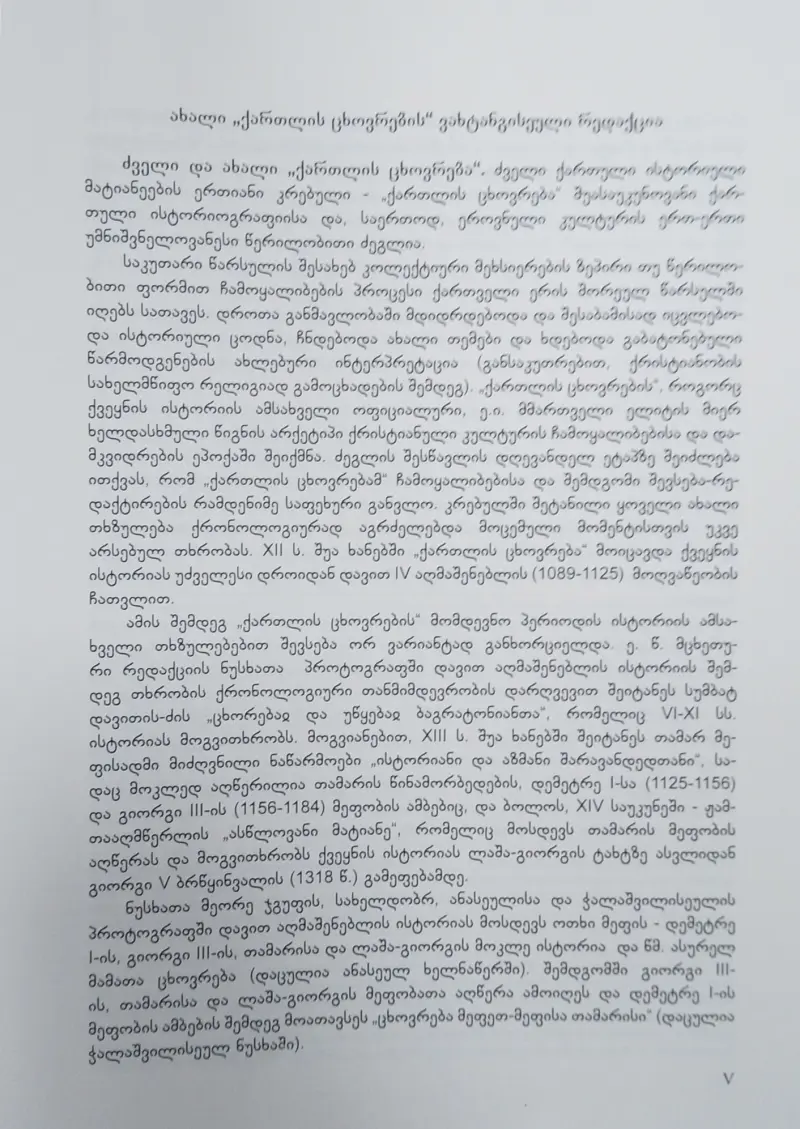 ახალი „ქართლის ცხოვრების“ ვახტანგისეული რედაქცია
ძველი და ახალი „ქართლის ცხოვრება“. ძველი ქართული ისტორიული
მატიანეების ერთიანი კრებული - „ქართლის ცხოვრება“ შუასაუკუნოვანი ქარ-
თული ისტორიოგრაფიისა და, საერთოდ, ეროვნული კულტურის ერთ-ერთი
უმნიშვნელოვანესი წერილობითი ძეგლია.
საკუთარი წარსულის შესახებ კოლექტიური მეხსიერების ზეპირი თუ წერილო-
ბითი ფორმით ჩამოყალიბების პროცესი ქართველი ერის შორეულ წარსულში
იღებს სათავეს. დროთა განმავლობაში მდიდრდებოდა და შესაბამისად იცვლებო-
და ისტორიული ცოდნა, ჩნდებოდა ახალი თემები და ხდებოდა გაბატონებული
წარმოდგენების ახლებური ინტერპრეტაცია (განსაკუთრებით, ქრისტიანობის
სახელმწიფო რელიგიად გამოცხადების შემდეგ). „ქართლის ცხოვრების“, როგორც
ქვეყნის ისტორიის ამსახველი ოფიციალური, ე.ი. მმართველი ელიტის მიერ
ხელდასხმული წიგნის არქეტიპი ქრისტიანული კულტურის ჩამოყალიბებისა და და-
მკვიდრების ეპოქაში შეიქმნა. ძეგლის შესწავლის დღევანდელ ეტაპზე შეიძლება
ითქვას, რომ „ქართლის ცხოვრებამ“ ჩამოყალიბებისა და შემდგომი შევსება-რე-
დაქტირების რამდენიმე საფეხური განვლო. კრებულში შეტანილი ყოველი ახალი
თხზულება ქრონოლოგიურად აგრძელებდა მოცემული მომენტისთვის უკვე
არსებულ თხრობას. XII ს. შუა ხანებში „ქართლის ცხოვრება“ მოიცავდა ქვეყნის
ისტორიას უძველესი დროიდან დავით IV აღმაშენებლის (1089-1125) მოღვაწეობის
ჩათვლით.
ამის შემდეგ „ქართლის ცხოვრების“ მომდევნო პერიოდის ისტორიის ამსა-
ხველი თხზულებებით შევსება ორ ვარიანტად განხორციელდა. ე. წ. მცხეთუ-
რი რედაქციის ნუსხათა პროტოგრაფში დავით აღმაშენებლის ისტორიის შემ-
დეგ თხრობის ქრონოლოგიური თანმიმდევრობის დარღვევით შეიტანეს სუმბატ
დავითის-ძის „ცხორებაჲ და უწყებაჲ ბაგრატონიანთა“, რომელიც VI-XI სს.
ისტორიას მოგვითხრობს. მოგვიანებით, XIII ს. შუა ხანებში შეიტანეს თამარ მე-
ფისადმი მიძღვნილი ნაწარმოები „ისტორიანი და აზმანი შარავანდედთანი“, სა-
დაც მოკლედ აღწერილია თამარის წინამორბედების, დემეტრე I-სა (1125-1156)
და გიორგი III-ის (1156-1184) მეფობის ამბებიც, და ბოლოს, XIV საუკუნეში - ჟამ-
თააღმწერლის „ასწლოვანი მატიანე“, რომელიც მოსდევს თამარის მეფობის
აღწერას და მოგვითხრობს ქვეყნის ისტორიას ლაშა-გიორგის ტახტზე ასვლიდან
გიორგი V ბრწყინვალის (1318 წ.) გამეფებამდე.
ნუსხათა მეორე ჯგუფის, სახელდობრ, ანასეულისა და ჭალაშვილისეულის
პროტოგრაფში დავით აღმაშენებლის ისტორიას მოსდევს ოთხი მეფის - დემეტრე
I-ის, გიორგი III-ის, თამარისა და ლაშა-გიორგის მოკლე ისტორია და წმ. ასურელ
მამათა ცხოვრება (დაცულია ანასეულ ხელნაწერში). შემდგომში გიორგი III-
ის, თამარისა და ლაშა-გიორგის მეფობათა აღწერა ამოიღეს და დემეტრე I-ის
მეფობის ამბების შემდეგ მოათავსეს „ცხოვრება მეფეთ-მეფისა თამარისი“ (დაცულია
ჭალაშვილისეულ ნუსხაში).
V